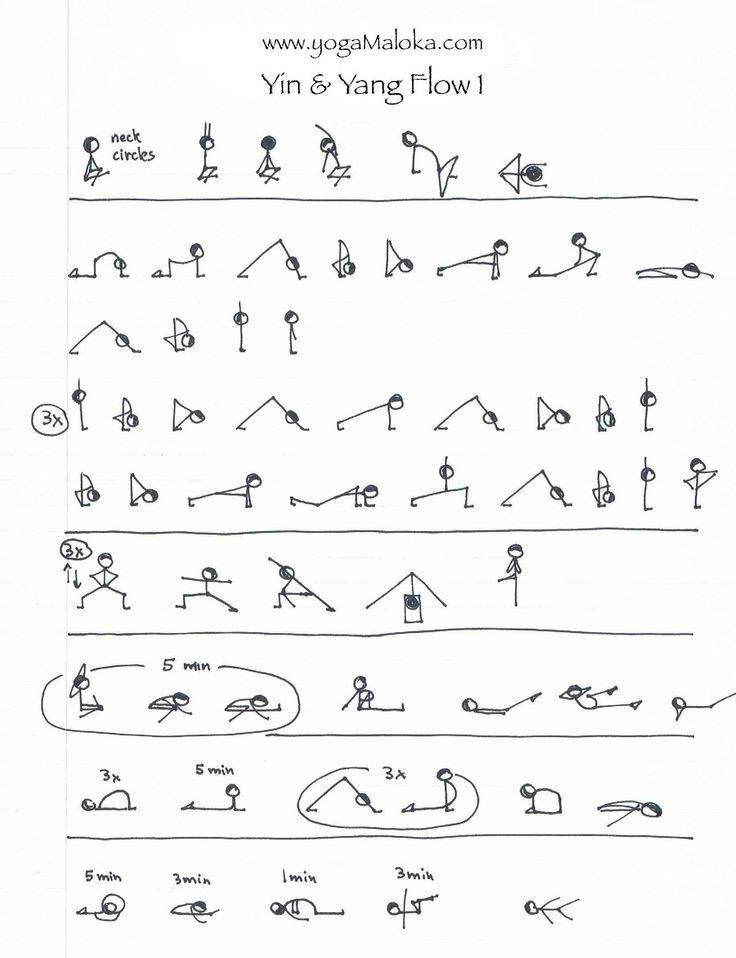 www.yogaMaloka.com
Yin & Yang Flow 1
neck
circles
3x
3x
5 min
3x
5 min
3x
5 min
3 min
1 min
3 min